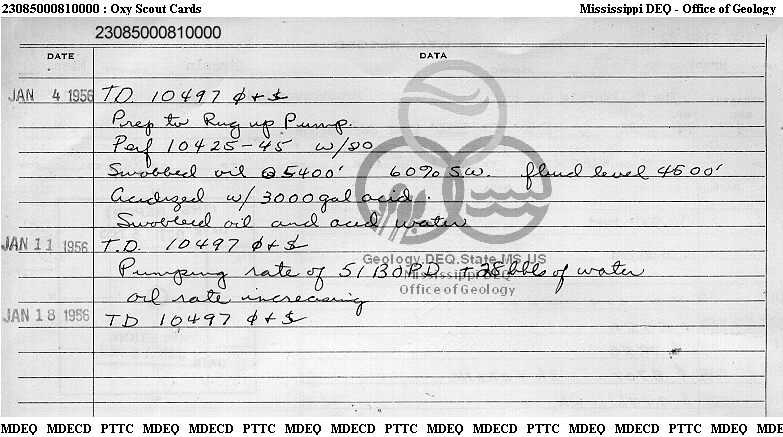 23085000810000 : Oxy Scout Cards Mississippi DEQ - Office of Geology
23085000810000
DATE DATA
JAN 4 1956 T.D. 10497 ¢ + $
Prep to Rug up Pump.
Perf 10425-45 w/80
Swabbed oil @ 5400' 60% S.W. fluid level 4500'
Acidized w/ 3000 gal acid.
Swabbed oil and acid water
JAN 11 1956 T.D. 10497 ¢ + $
Geology.DEQ.State.MS.US
Pumping rate of 51 BOPD + 28 bbls of water
Mississippi DEQ
Office of Geology
oil rate increasing
JAN 18 1956 TD 10497 ¢ + $
MDEQ MDECD PTTC MDEQ MDECD PTTC MDEQ MDECD PTTC MDEQ MDECD PTTC MDEQ MDECD PTTC MDEQ MDE